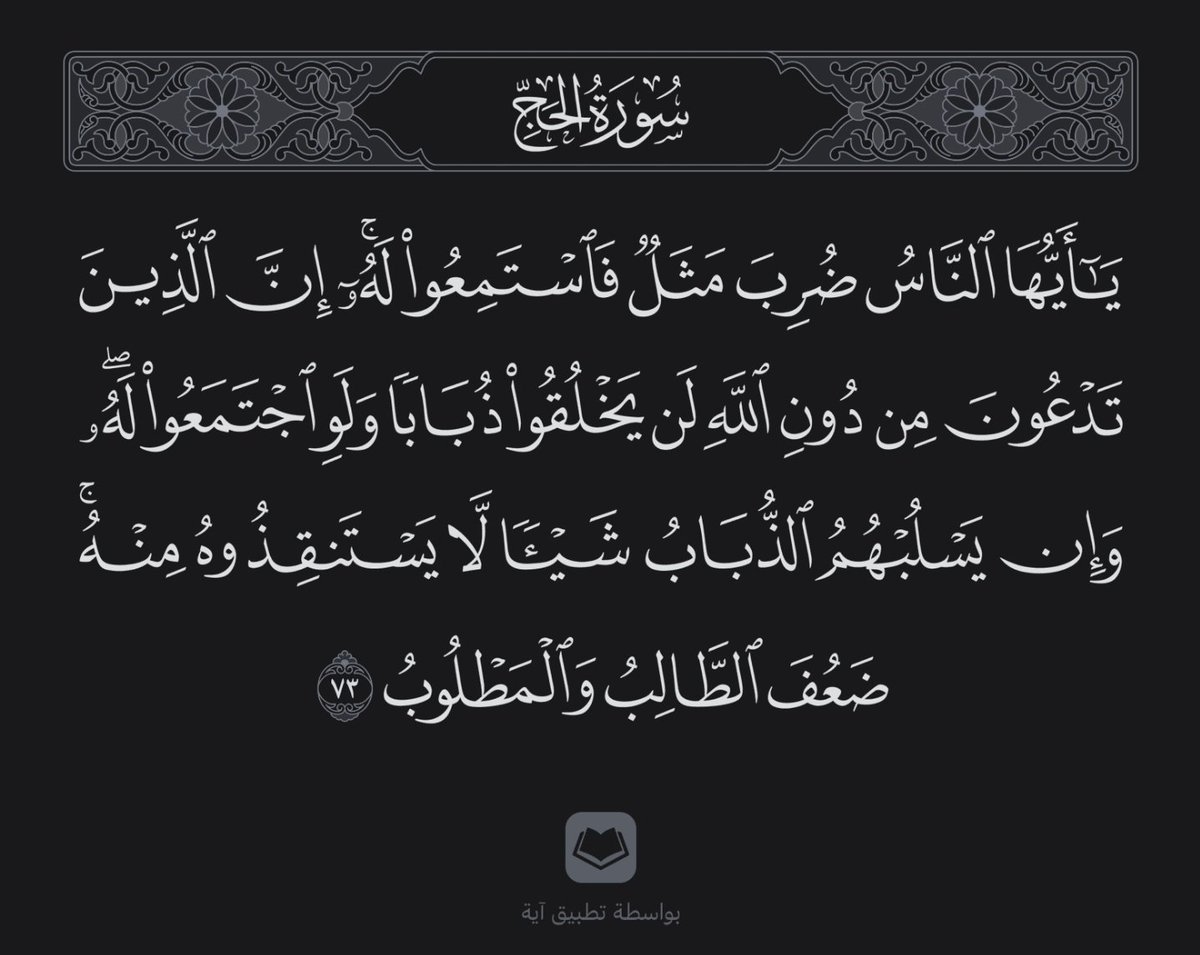 سُورَةُ الحَجِّ
يَـٰٓأَيُّهَا ٱلنَّاسُ ضُرِبَ مَثَلٌۭ فَٱسْتَمِعُوا۟ لَهُۥٓ ۚ إِنَّ ٱلَّذِينَ
تَدْعُونَ مِن دُونِ ٱللَّهِ لَن يَخْلُقُوا۟ ذُبَابًۭا وَلَوِ ٱجْتَمَعُوا۟ لَهُۥ ۖ
وَإِن يَسْلُبْهُمُ ٱلذُّبَابُ شَيْـًۭٔا لَّا يَسْتَنقِذُوهُ مِنْهُ ۚ
ضَعُفَ ٱلطَّالِبُ وَٱلْمَطْلُوبُ ٧٣
بواسطة تطبيق آية